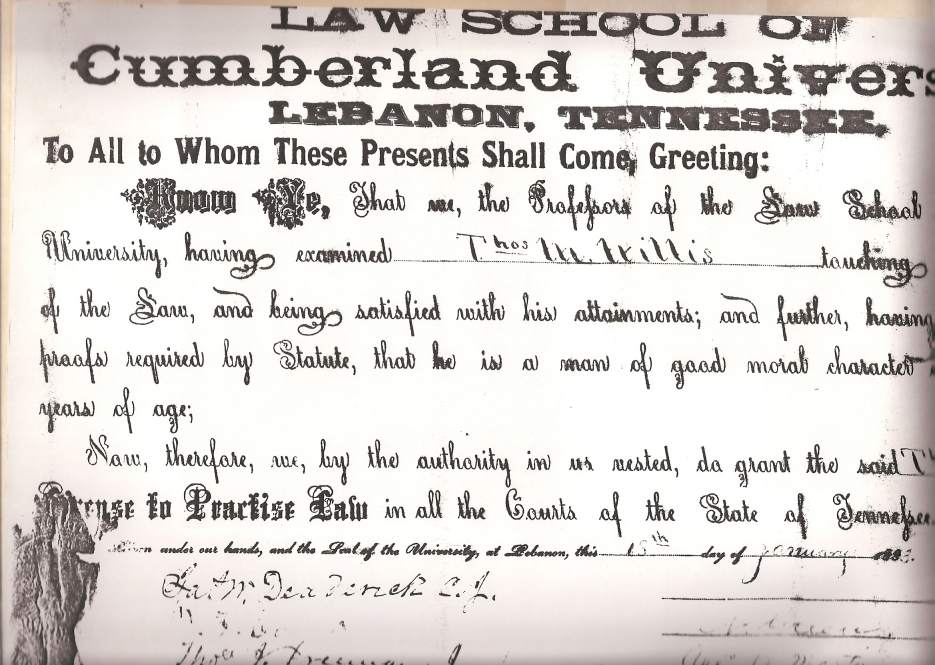 LAW SCHOOL OF
Cumberland Univers
LEBANON, TENNESSEE,
To All to Whom These Presents Shall Come, Greeting:
Know Ye, That we, the Professors of the Law School
University, having examined Thos M. Willis touching
of the Law, and being satisfied with his attainments; and further, having
proofs required by Statute, that he is a man of good moral character
years of age;
Now, therefore, we, by the authority in us vested, do grant the said T
License to Practise Law in all the Courts of the State of Tennessee.
Given under our hands, and the Seal of the University, at Lebanon, this 15th day of January
Jas. W. Deaderick C.J.
Thos J. Freeman J